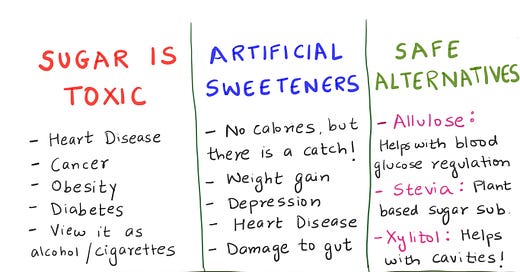 SUGAR IS
TOXIC
- Heart Disease
- Cancer
- Obesity
- Diabetes
- View it as
alcohol/cigarettes
ARTIFICIAL
SWEETENERS
- No calories, but
there is a catch!
- Weight gain
- Depression
- Heart Disease
- Damage to gut
SAFE
ALTERNATIVES
- Allulose:
Helps with blood
glucose regulation
- Stevia: Plant
based sugar sub.
- Xylitol: Helps
with cavities!